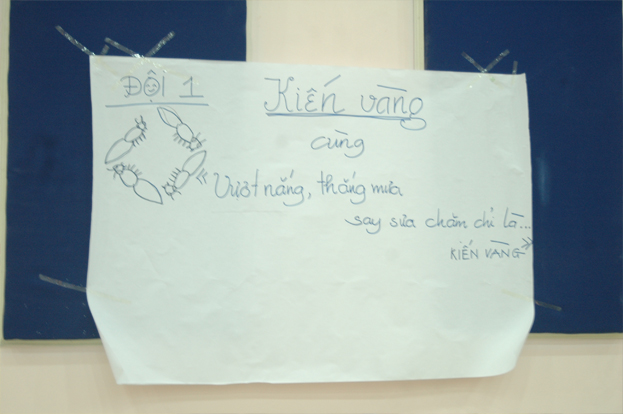 ĐỘI 1
Kiến vàng
cùng
Vượt nắng, thắng mưa
say sưa chăm chỉ là...
KIẾN VÀNG